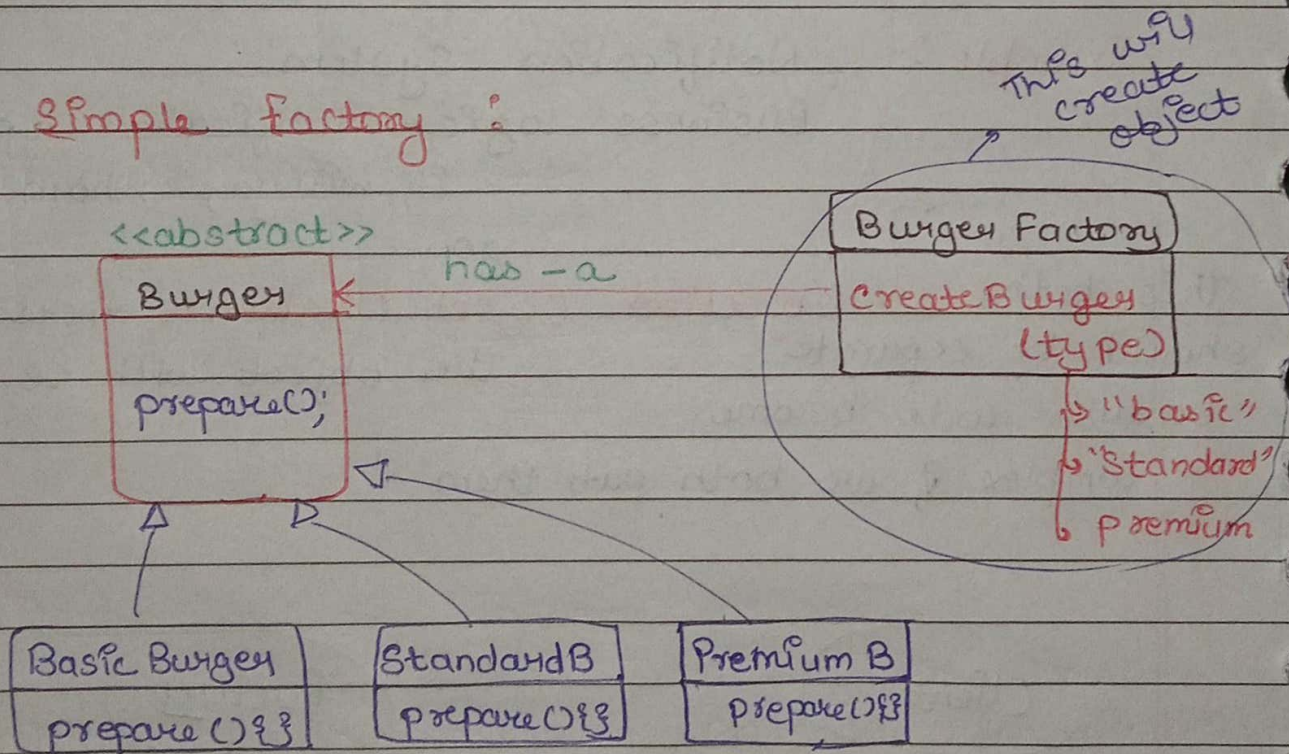 This will
create
object
Simple factory :
<<abstract>>
Burger
prepare();
has-a
Burger Factory
CreateBurger
(type)
"basic"
"Standard"
premium
Basic Burger
prepare(){}
StandardB
prepare(){}
Premium B
prepare(){}